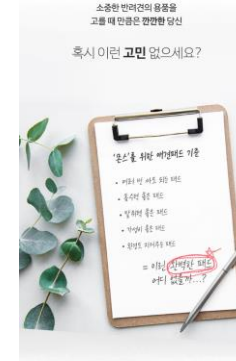 소중한 반려견의 용품을
고를 때 만큼은 깐깐한 당신
혹시 이런 고민 없으세요?
'몬스'를 위한 애견패드 기준
• 여러 번 싸도 되는 패드
• 흡수력 좋은 패드
• 탈취력 좋은 패드
• 가성비 좋은 패드
• 흡수력 패드
= 이런 완벽한 패드
어디 없을까...?